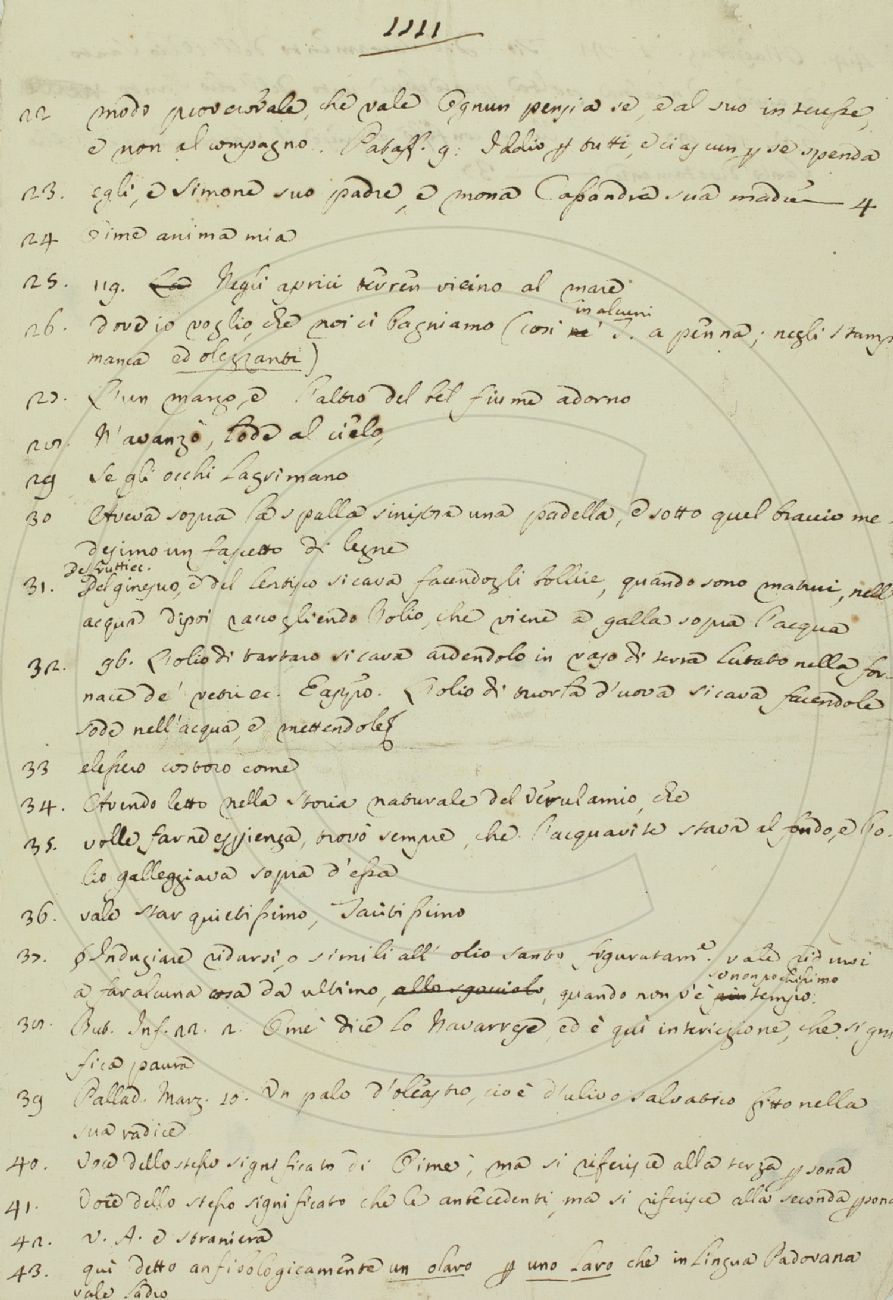 1111
22 modo proverbiale, che vale Ognun pensi a se, e al suo interesse,
e non al compagno. Pataff. 9: Iddio p tutti, e ciascun p se spenda
23. egli, e Simone suo padre, e mona Cassandra sua madre 4
24 Oime anima mia
25. 119. Negli aprici terren vicino al mare
26. dove io voglio, che noi ci bagniamo (così in alcuni T. a penna; negli stamp
manca ed olezzanti)
27. L'un margo, e l'altro del bel fiume adorno
28. N'avanzò, lode al cielo,
29 Se gli occhi lagrimano
30 Aveva sopra la spalla sinistra una padella, e sotto quel braccio me
desimo un fascetto di legne
31. De' frutti ec. Del ginepro, e del lentisco si cava facendogli bollire, quando sono maturi, nell
acqua dipoi raccogliendo l'olio, che viene a galla sopra l'acqua
32. 96. L'olio di tartaro si cava ardendolo in vaso di terra lutato nella for-
nace de' vetri ec. E appo. L'olio di tuorla d'uova si cava facendole
sode nell'acqua, e mettendole
33 essero costoro come
34. Avendo letto nella storia naturale del Verulamio, che
35. volle farne esperienza, trovò sempre, che l'acquavite stava al fondo, e l'o-
lio galleggiava sopra d'essa
36. vale star quietissimo, Tacitissimo
37. Indugiare ridursi, o simili all'olio santo figuratam.e vale ridursi
a far alcuna cosa da ultimo, allo sgocciolo, quando non v'è se non pochissimo tempo.
38. But. Inf. 22. 2. Omè dice lo Navarrese, ed è qui interiezione, che signi
fica paura
39 Pallad. Marz. 10. Un palo d'oleastro, cioè d'ulivo salvatico fitto nella
sua radice
40. Voce dello stesso significato di Oimè, ma si riferisce alla terza psona
41. Voce dello stesso significato che le antecedenti, ma si riferisce alla seconda pson
42. V. A. e straniera
43. qui detto anfibologicamente un olaro p uno laro che in Lingua Padovana
vale ladro